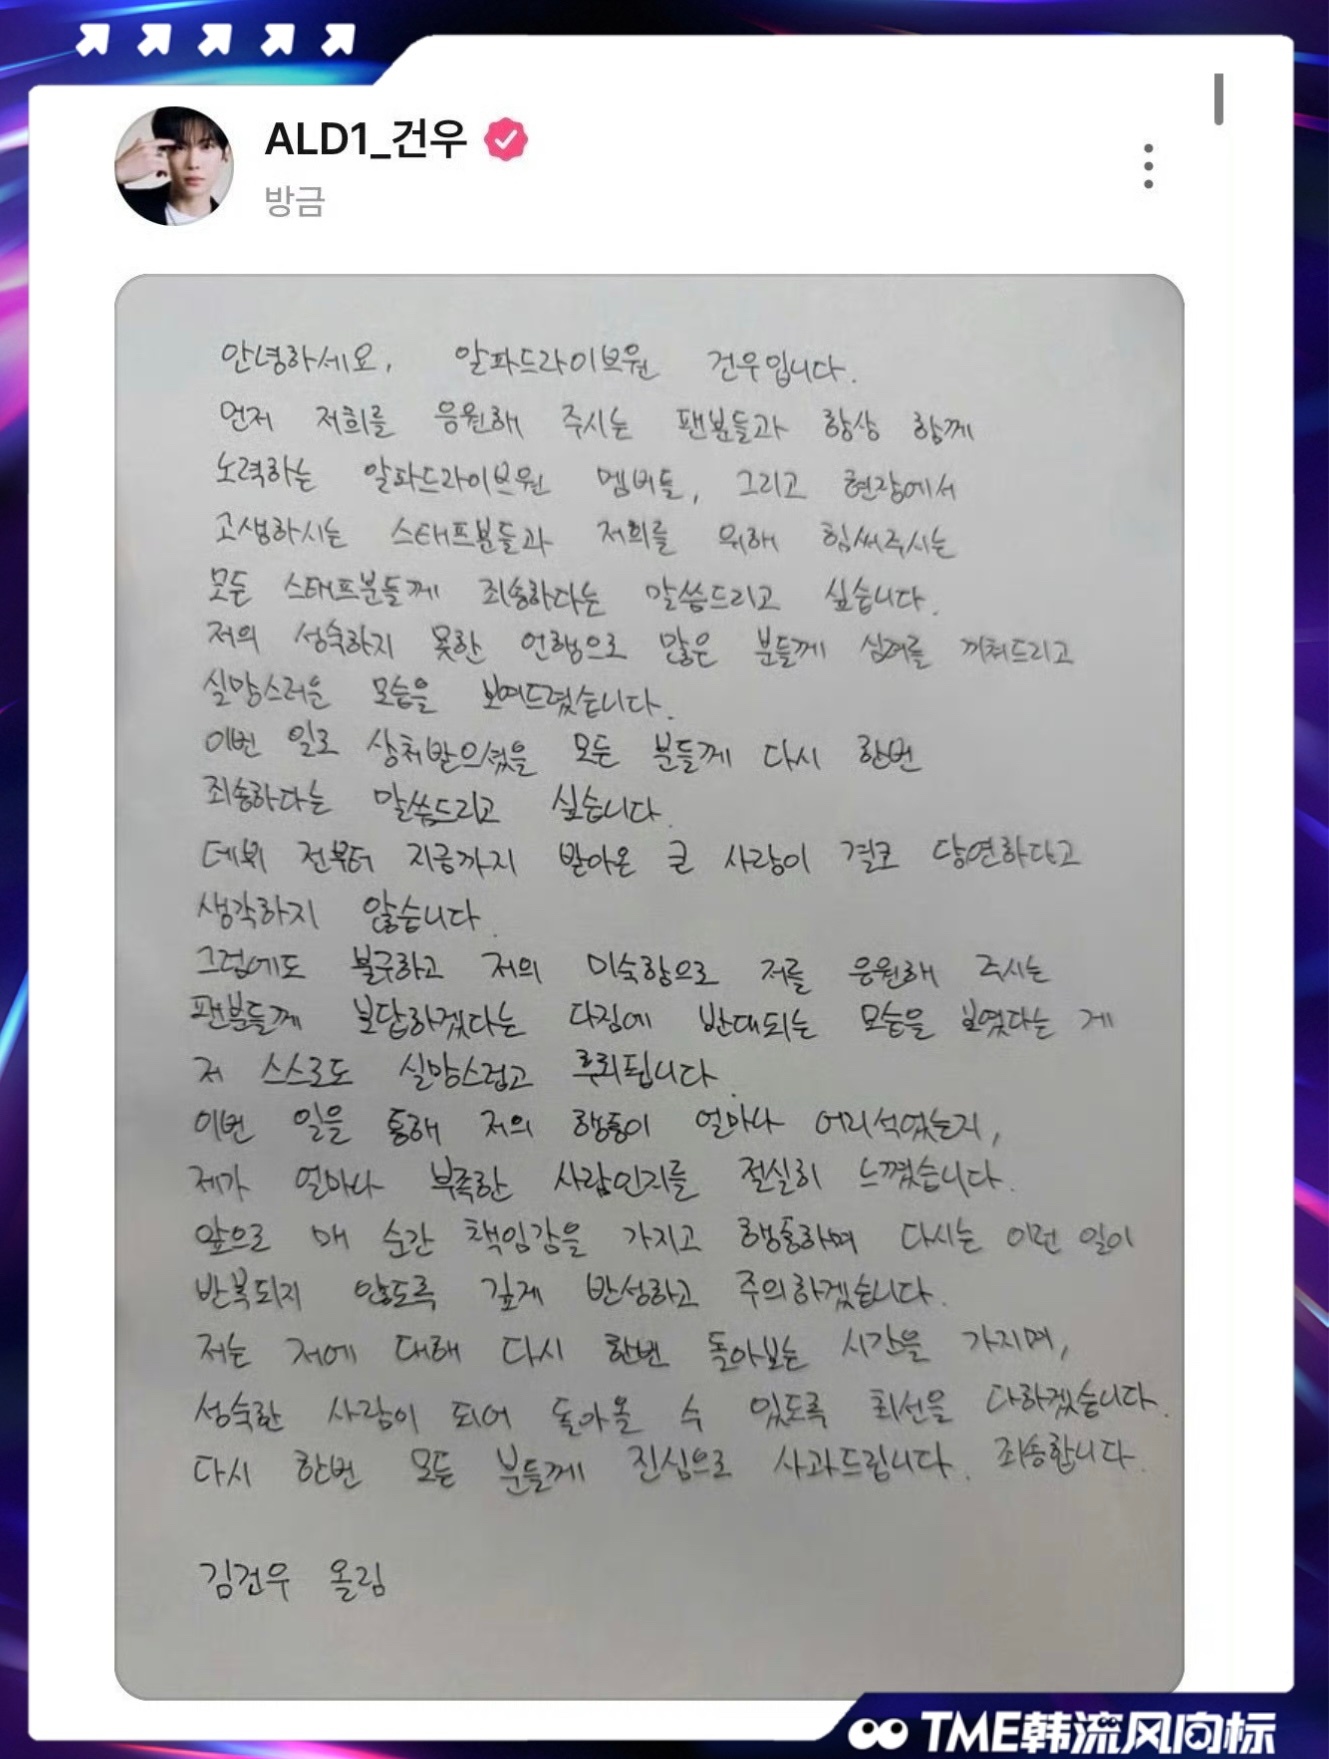 ALD1_건우
방금
안녕하세요, 알파드라이브원 건우입니다.
먼저 저희를 응원해 주시는 팬분들과 항상 함께
노력하는 알파드라이브원 멤버들, 그리고 현장에서
고생하시는 스태프분들과 저희를 위해 힘써주시는
모든 스태프분들께 죄송하다는 말씀드리고 싶습니다.
저의 성숙하지 못한 언행으로 많은 분들께 심려를 끼쳐드리고
실망스러운 모습을 보여드렸습니다.
이번 일로 상처받으셨을 모든 분들께 다시 한번
죄송하다는 말씀드리고 싶습니다.
데뷔 전부터 지금까지 받아온 큰 사랑이 결코 당연하다고
생각하지 않습니다.
그럼에도 불구하고 저의 미숙함으로 저를 응원해 주시는
팬분들께 보답하겠다는 다짐에 반대되는 모습을 보였다는 게
저 스스로도 실망스럽고 후회됩니다.
이번 일을 통해 저의 행동이 얼마나 어리석었는지,
제가 얼마나 부족한 사람인지를 절실히 느꼈습니다.
앞으로 매 순간 책임감을 가지고 행동하며 다시는 이런 일이
반복되지 않도록 깊게 반성하고 주의하겠습니다.
저는 저에 대해 다시 한번 돌아보는 시간을 가지며,
성숙한 사람이 되어 돌아올 수 있도록 최선을 다하겠습니다.
다시 한번 모든 분들께 진심으로 사과드립니다. 죄송합니다.
김건우 올림
TME韩流风向标